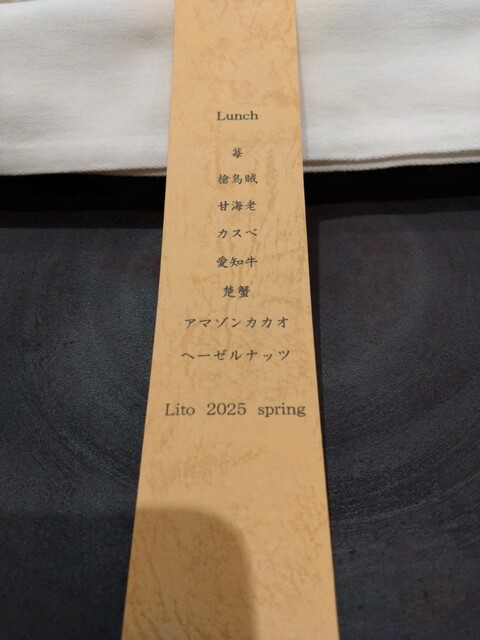 Lunch
苺
槍烏賊
甘海老
カスベ
愛知牛
楚蟹
アマゾンカカオ
ヘーゼルナッツ
Lito 2025 spring